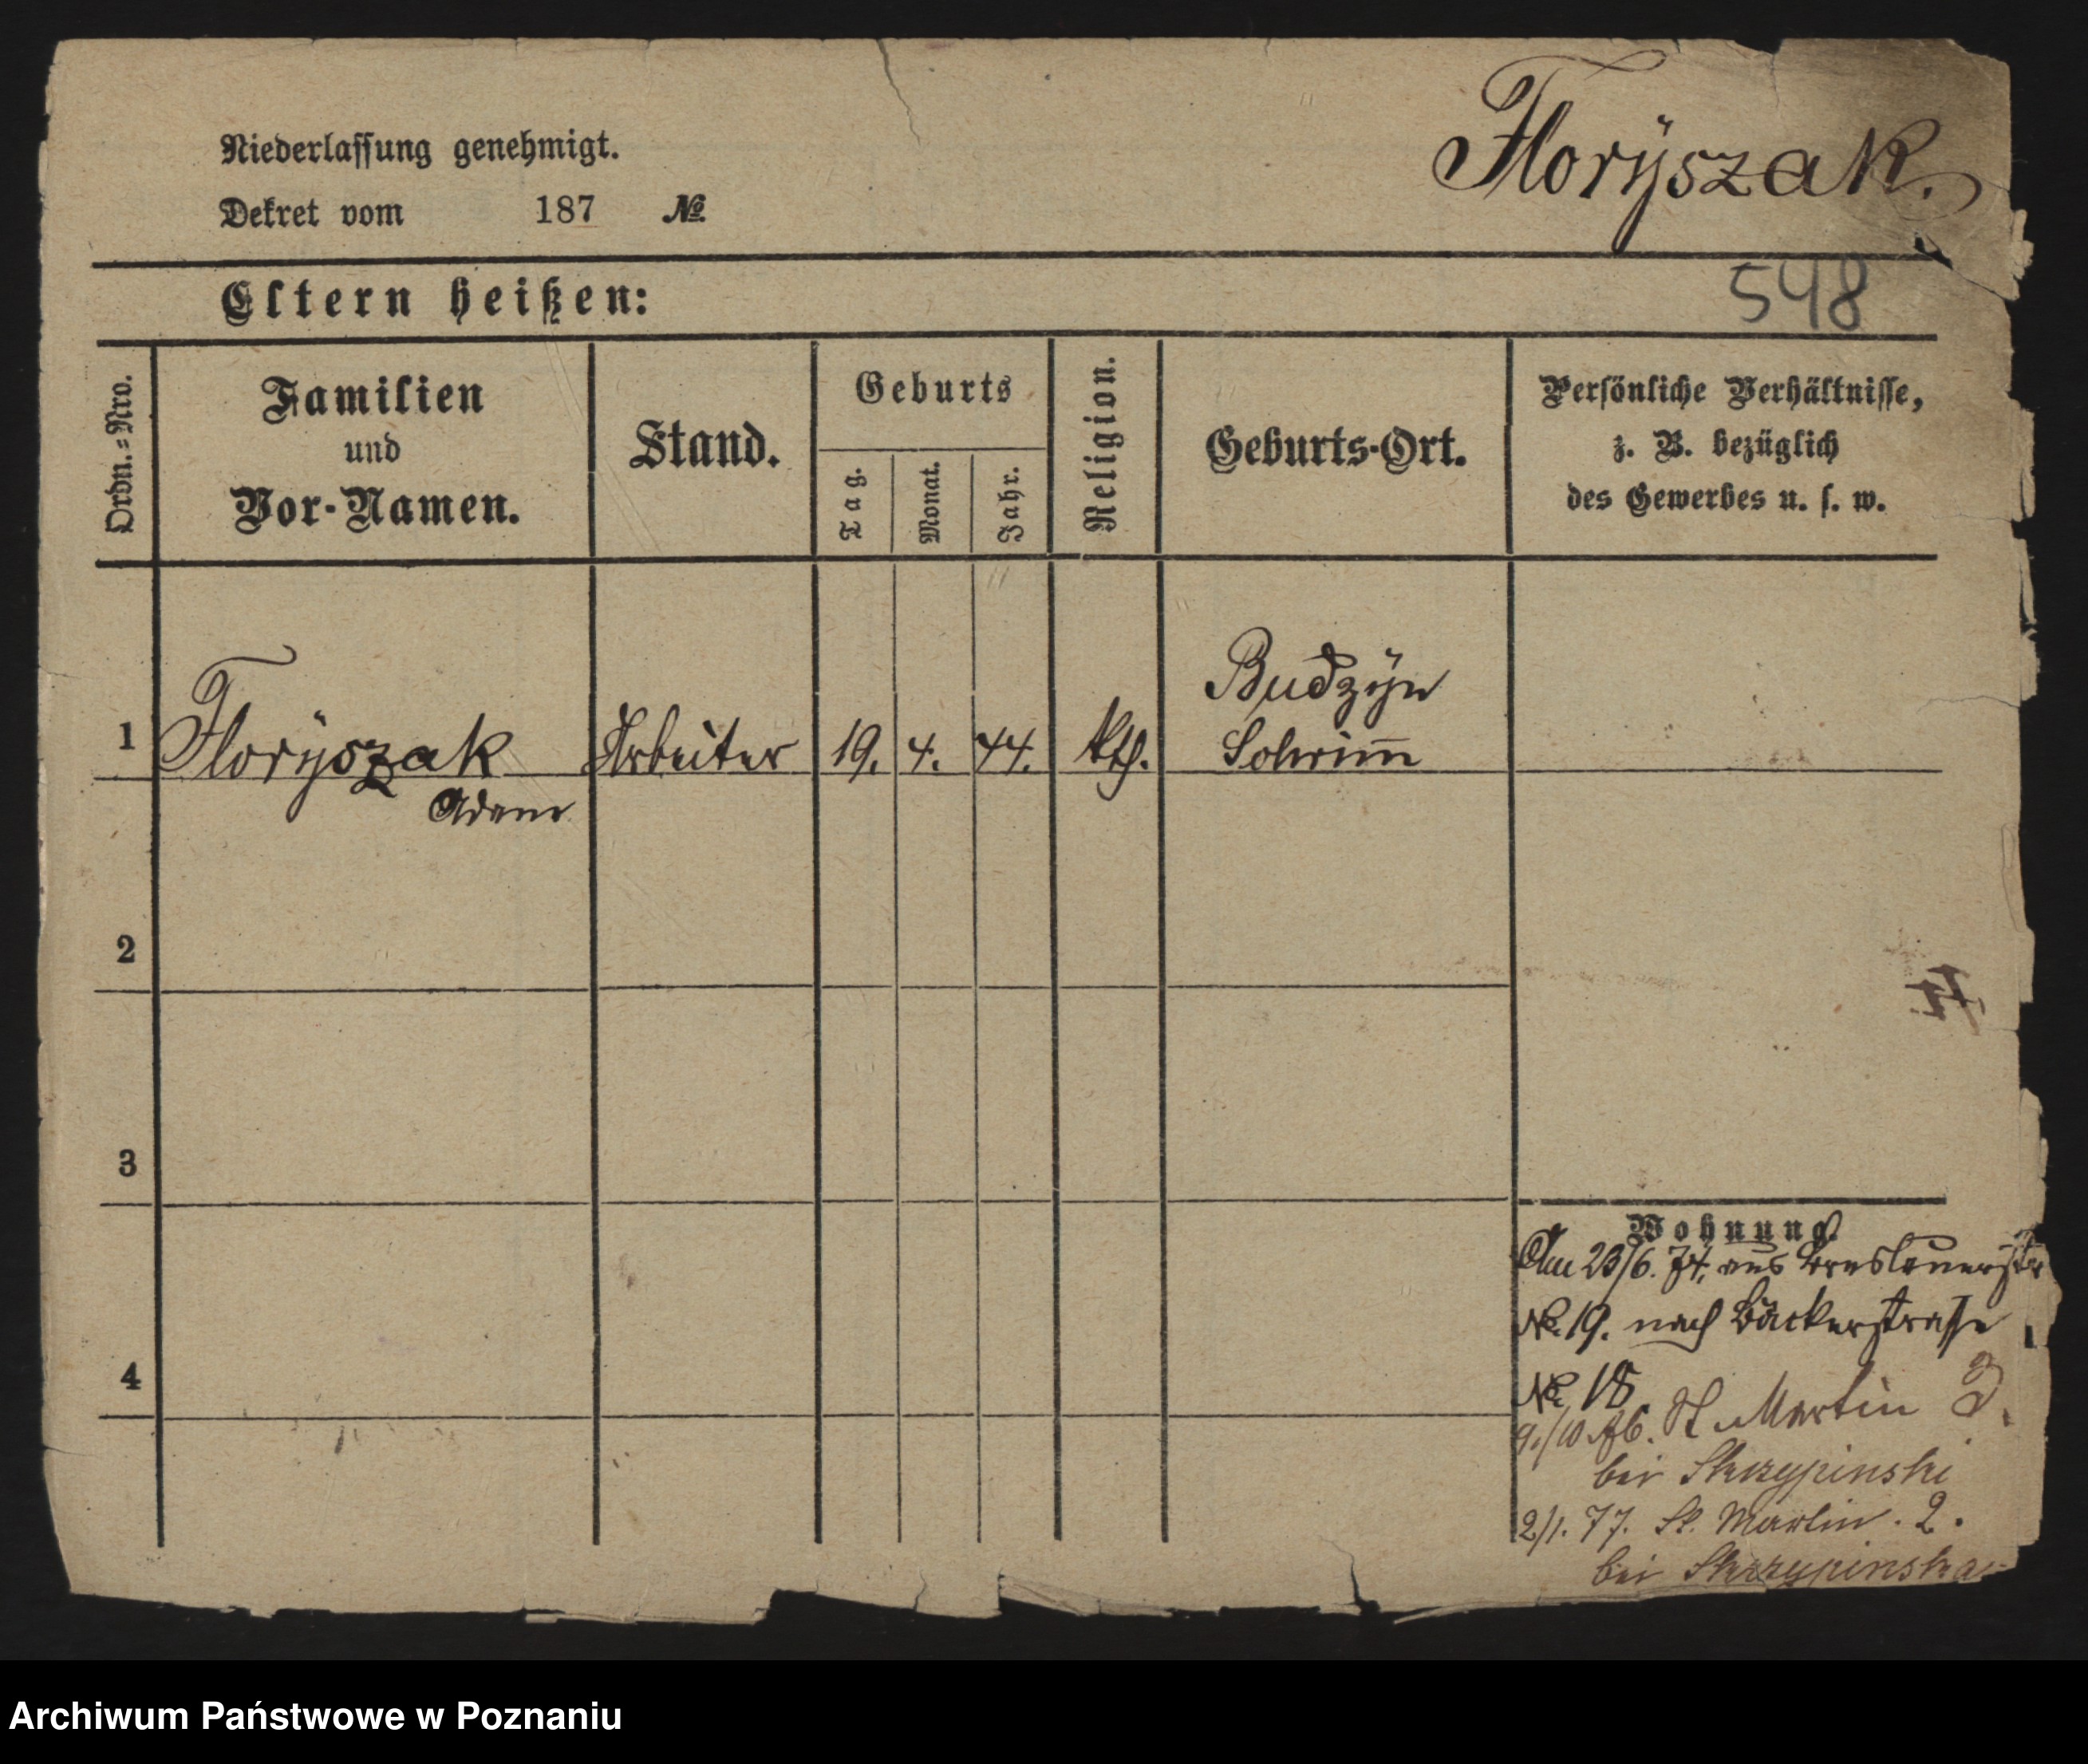 Niederlassung genehmigt.
Dekret vom 187 №
Florÿszak.
548
Eltern heißen:
Ordn.=Nro.
Familien
und
Vor-Namen.
Stand.
Geburts
Tag.
Monat.
Jahr.
Religion.
Geburts-Ort.
Persönliche Verhältnisse,
z. B. bezüglich
des Gewerbes u. s. w.
1 Florÿszak Arbeiter 19. 4. 44. kth. Budzÿn
Schrim̅
Adam
2
3
4
Wohnung.
Am 23/6. 74. aus Breslauerstr
No. 19. nach Bäckerstraße
No. 18
9./10 76. St Martin
bei Skrzypinski
2/1. 77. St. Martin. 2.
bei Skrzypinska
Archiwum Państwowe w Poznaniu